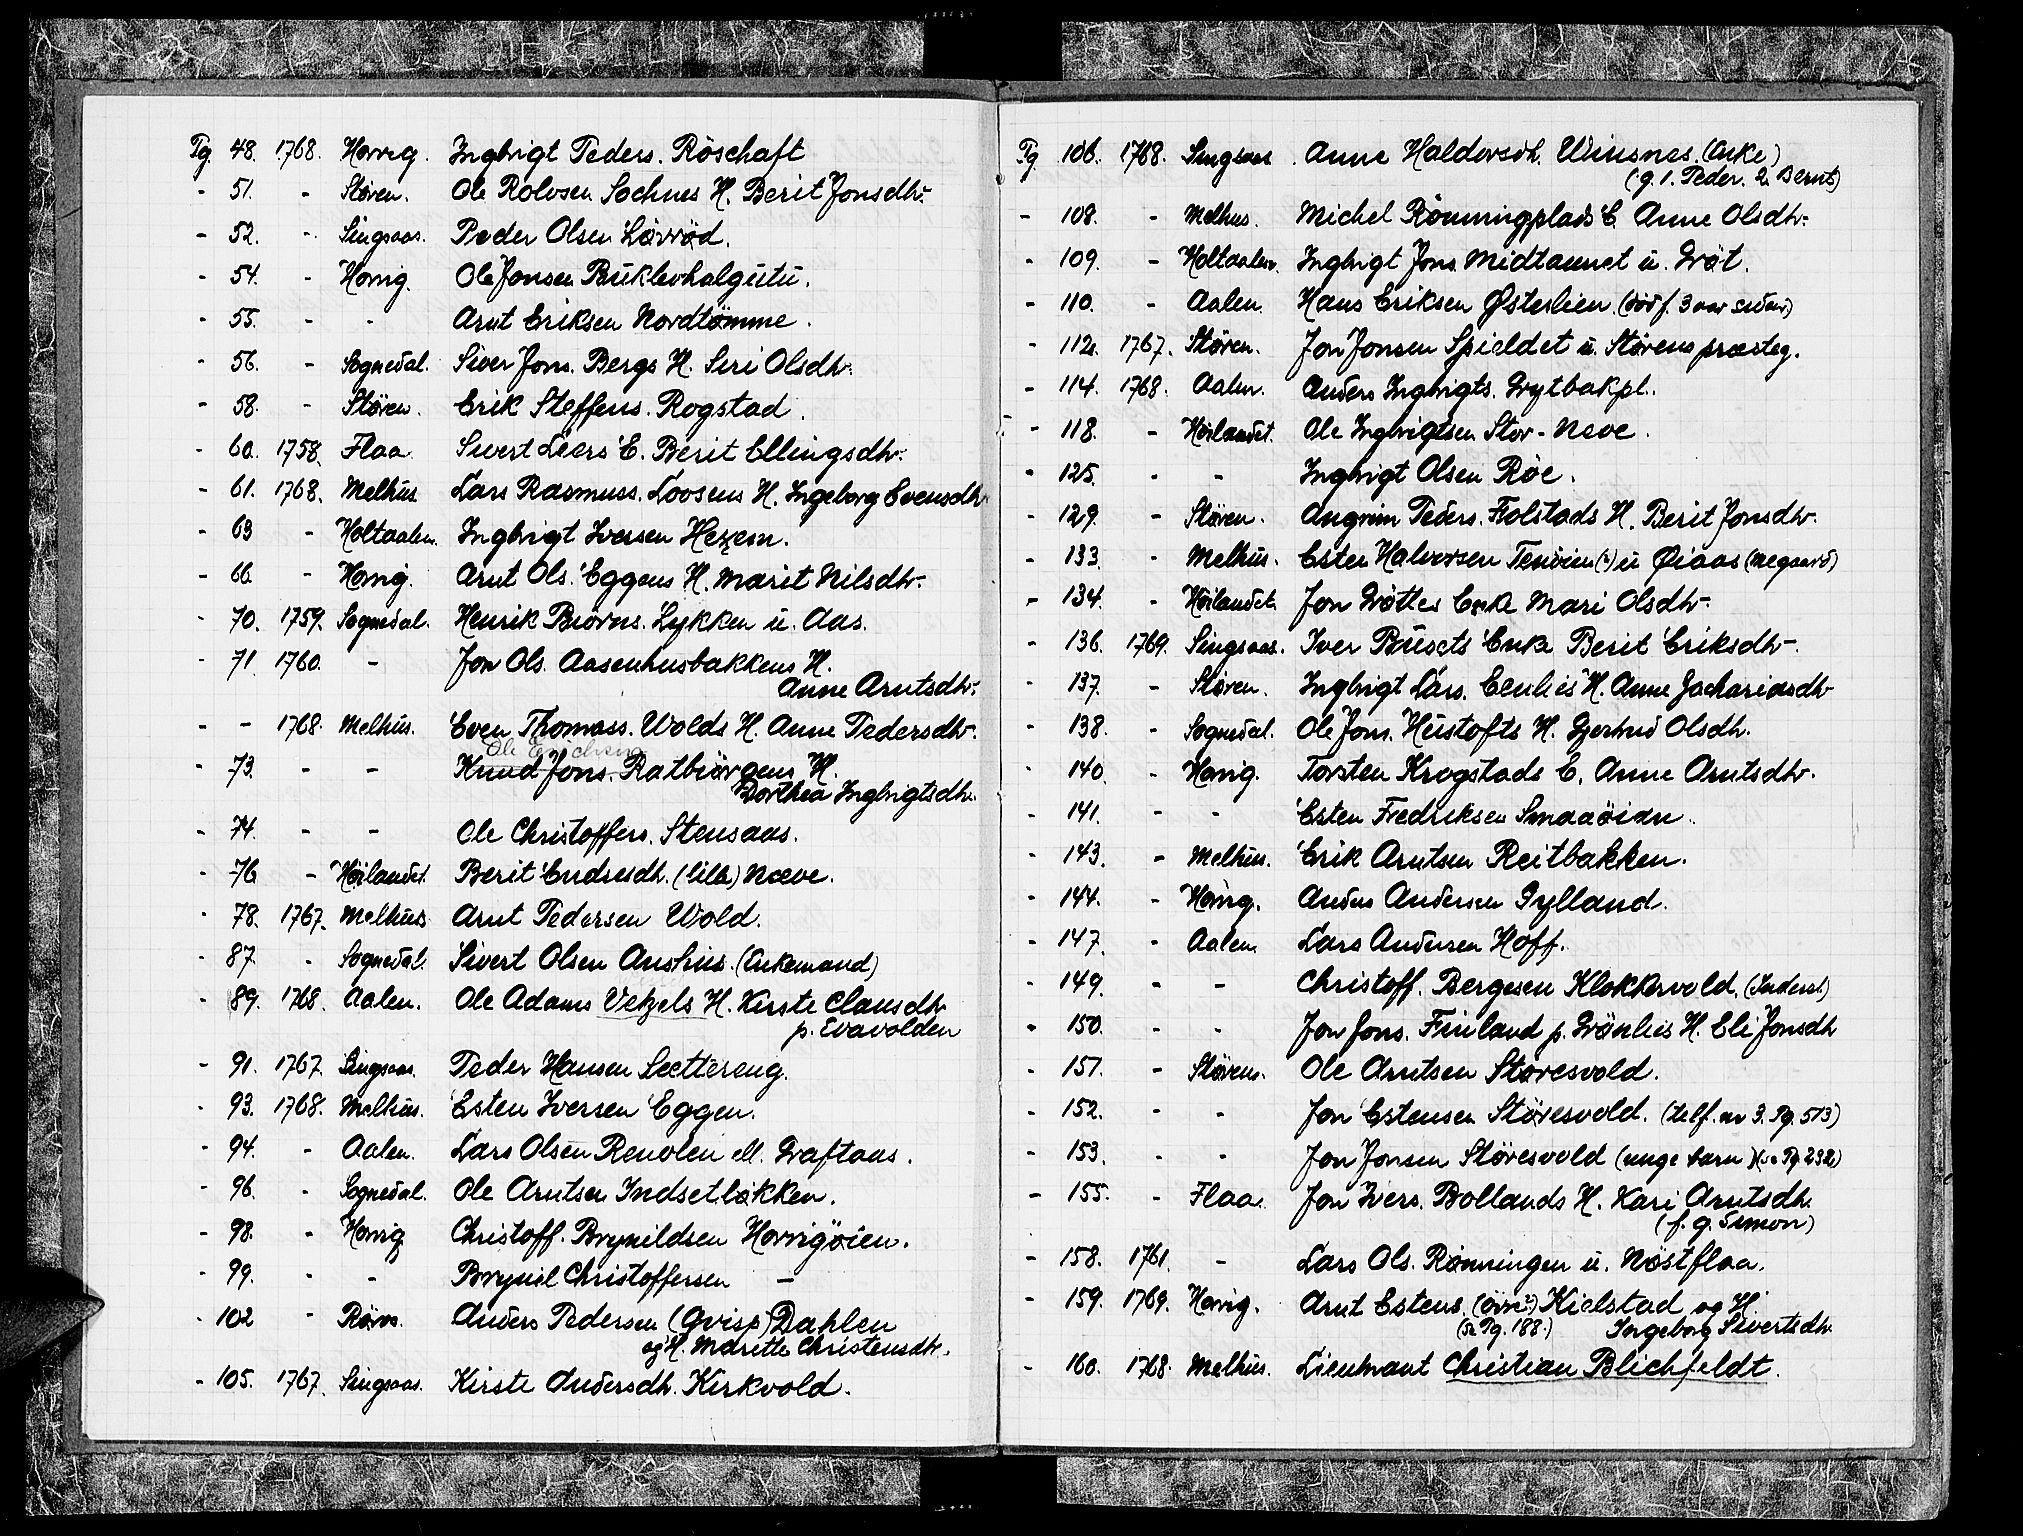 Pg. 48. 1768. Horrig. Ingbrigt Peders. Röschaft
- 51. - Støren. Ole Rolvsen Sochnes H. Berit Jonsdtr.
- 52. - Singsaas. Peder Olsen Lövröd.
- 54. - Horrig. Ole Jonsen Buklevhalgutu.
- 55. - - Arnt Eriksen Nordtömme.
- 56. - Sognedal. Siver Jons. Bergs H. Siri Olsdtr.
- 58. - Støren. Erik Steffens. Rogstad.
- 60. 1758. Flaa Sivert Leers E. Berit Ellingsdtr.
- 61. 1768. Melhus Lars Rasmuss. Loosens H. Ingeborg Evensdtr
- 63 - Holtaalen. Ingbrigt Iversen Hezem.
- 66. - Horrig. Arnt Ols. Eggens H. Marit Nilsdtr.
- 70. 1759. Sognedal. Henrik Biörns. Lykken u. Aas.
- 71. 1760. - Jon Ols. Aasenhusbakkens H.
Anne Arntsdtr.
- - 1768. Melhus. Even Thomass. Wolds H. Anne Pedersdtr.
Ole Erichsens
- 73. - - Knud Jons. Ratbiörgens H.
Dorthea Ingbrigtsdtr.
- 74. - - Ole Christoffers. Stensaas.
- 76 - Höilandet. Berit Endresdtr. (lille) Næve.
- 78. 1767. Melhus Arnt Pedersen Wold.
- 87. - Sognedal. Sivert Olsen Aushus. (Enkemand)
- 89. 1768. Aalen. Ole Adams Vetzels H. Kirste Clausdtr
p. Evavolden
- 91. 1767. Singsaas. Peder Hansen Sættereng.
- 93. 1768. Melhus. Esten Iversen Eggen.
- 94. - Aalen. Lars Olsen Renolen ell. Graftaas.
- 96. - Sognedal. Ole Arntsen Indsetlökken.
- 98. - Horrig Christoff. Brynildsen Horrigöien.
- 99. - - Brynil Christoffersen -
- 102 - Röros. Anders Pedersen (Qvisp) Dahlen
og H. Marithe Christensdtr.
- 105. 1767. Singsaas. Kirste Andersdtr. Kirkvold.
Pg 106. 1768. Singsaas. Anne Haldorsdtr. Winsnes. (Enke)
(g. 1. Peder. 2. Bernt)
- 108. - Melhus. Michel Rönningplads E. Anne Olsdtr.
- 109. - Holtaalen. Ingbrigt Jons. Midtaunet u. Gröt.
- 110. - Aalen. Hans Eriksen Østerlien (död f. 3 aar sedan)
- 112. 1767. Støren. Jon Jonsen Spieldet u. Störens præsteg.
- 114. 1768. Aalen. Anders Ingbrigts. Grytbakpl.
- 118. - Höilandet. Ole Ingbrigtsen Stor-Neve.
- 125. - - Ingbrigt Olsen Röe.
- 129. - Støren. Angrim Peders. Folstads H. Berit Jonsdtr.
- 133. - Melhus. Esten Halvorsen Tenöien (?) u Øiaas (negaard)
- 134. - Höilandet. Jon Gröttes Enke Mari Olsdtr.
- 136. 1769. Singsaas. Iver Busets Enke Berit Eriksdtr.
- 137. - Støren. Ingbrigt Lars. Eenlies H. Anne Zachariasdtr
- 138. - Sognedal. Ole Jons. Hustofts H. Gjertrud Olsdtr.
- 140. - Horrig. Torsten Krogstads E. Anne Arntsdtr.
- 141. - - Esten Fredriksen Smaaöien.
- 143. - Melhus. Erik Arntsen Reitbakken.
- 144. - Horrig. Anders Andersen Gylland.
- 147. - Aalen. Lars Andersen Hoff.
- 149. - - Christoff. Bergesen Klokkervold. (Inderst)
- 150. - - Jon Jons. Finland p. Grönlies H. Eli Jonsdtr
- 151. - Støren. Ole Arntsen Støresvold.
- 152. - - Jon Estensen Støresvold. (telf. nr 3. Pg. 513)
- 153. - - Jon Jonsen Støresvold (unge barn) (se Pg. 232)
- 155. - Flaa. Jon Ivers. Bollands H. Kari Arntsdtr.
(f. g. Simon)
- 158. 1761. - Lars Ols. Rønningen u. Nöstflaa.
- 159. 1769. Horrig. Arnt Estens. (övre?) Kielstad og H.
(se Pg. 188.) Ingeborg Sivertsdtr.
- 160. 1768. Melhus. Lieutnant Christian Blichfeldt.